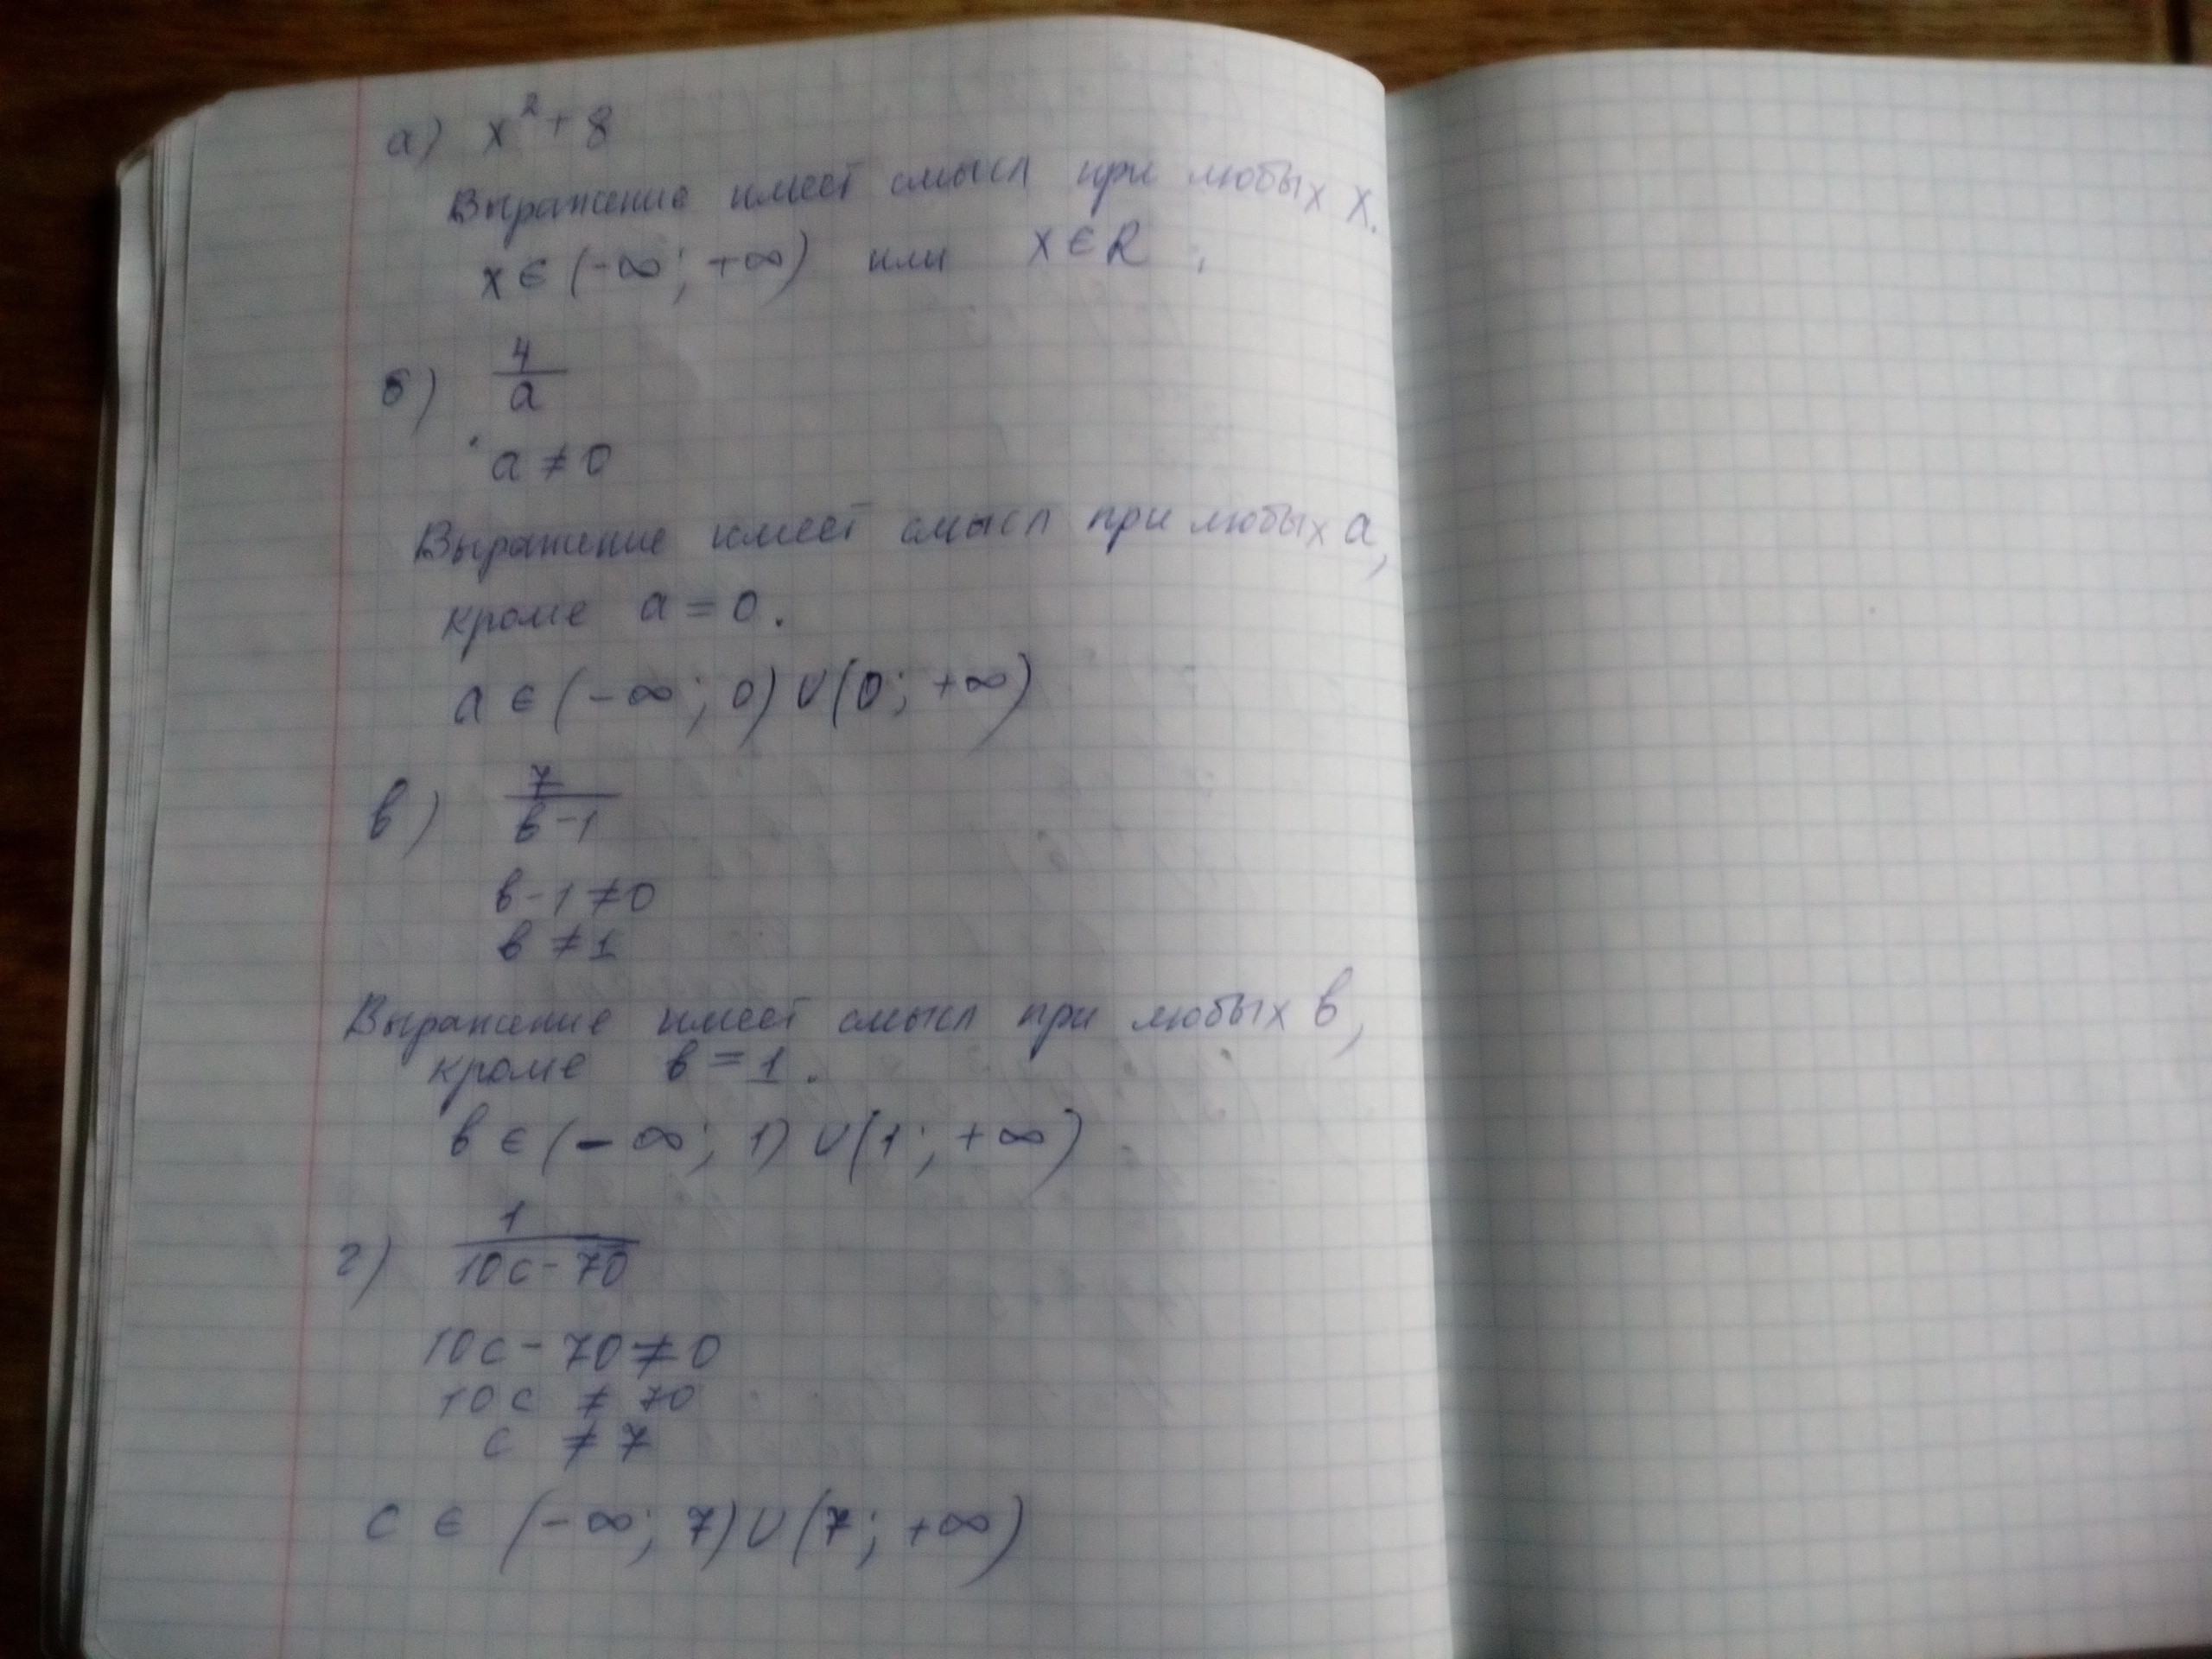 а) x² + 8
Выражение имеет смысл при любых x.
x ∈ (-∞; +∞) или x ∈ R;
б) 4/a
a ≠ 0
Выражение имеет смысл при любых a,
кроме a = 0.
a ∈ (-∞; 0) ∪ (0; +∞)
в) 7/(в-1)
в-1 ≠ 0
в ≠ 1
Выражение имеет смысл при любых в,
кроме в = 1.
в ∈ (-∞; 1) ∪ (1; +∞)
г) 1/(10c-70)
10c - 70 ≠ 0
10c ≠ 70
c ≠ 7
c ∈ (-∞; 7) ∪ (7; +∞)